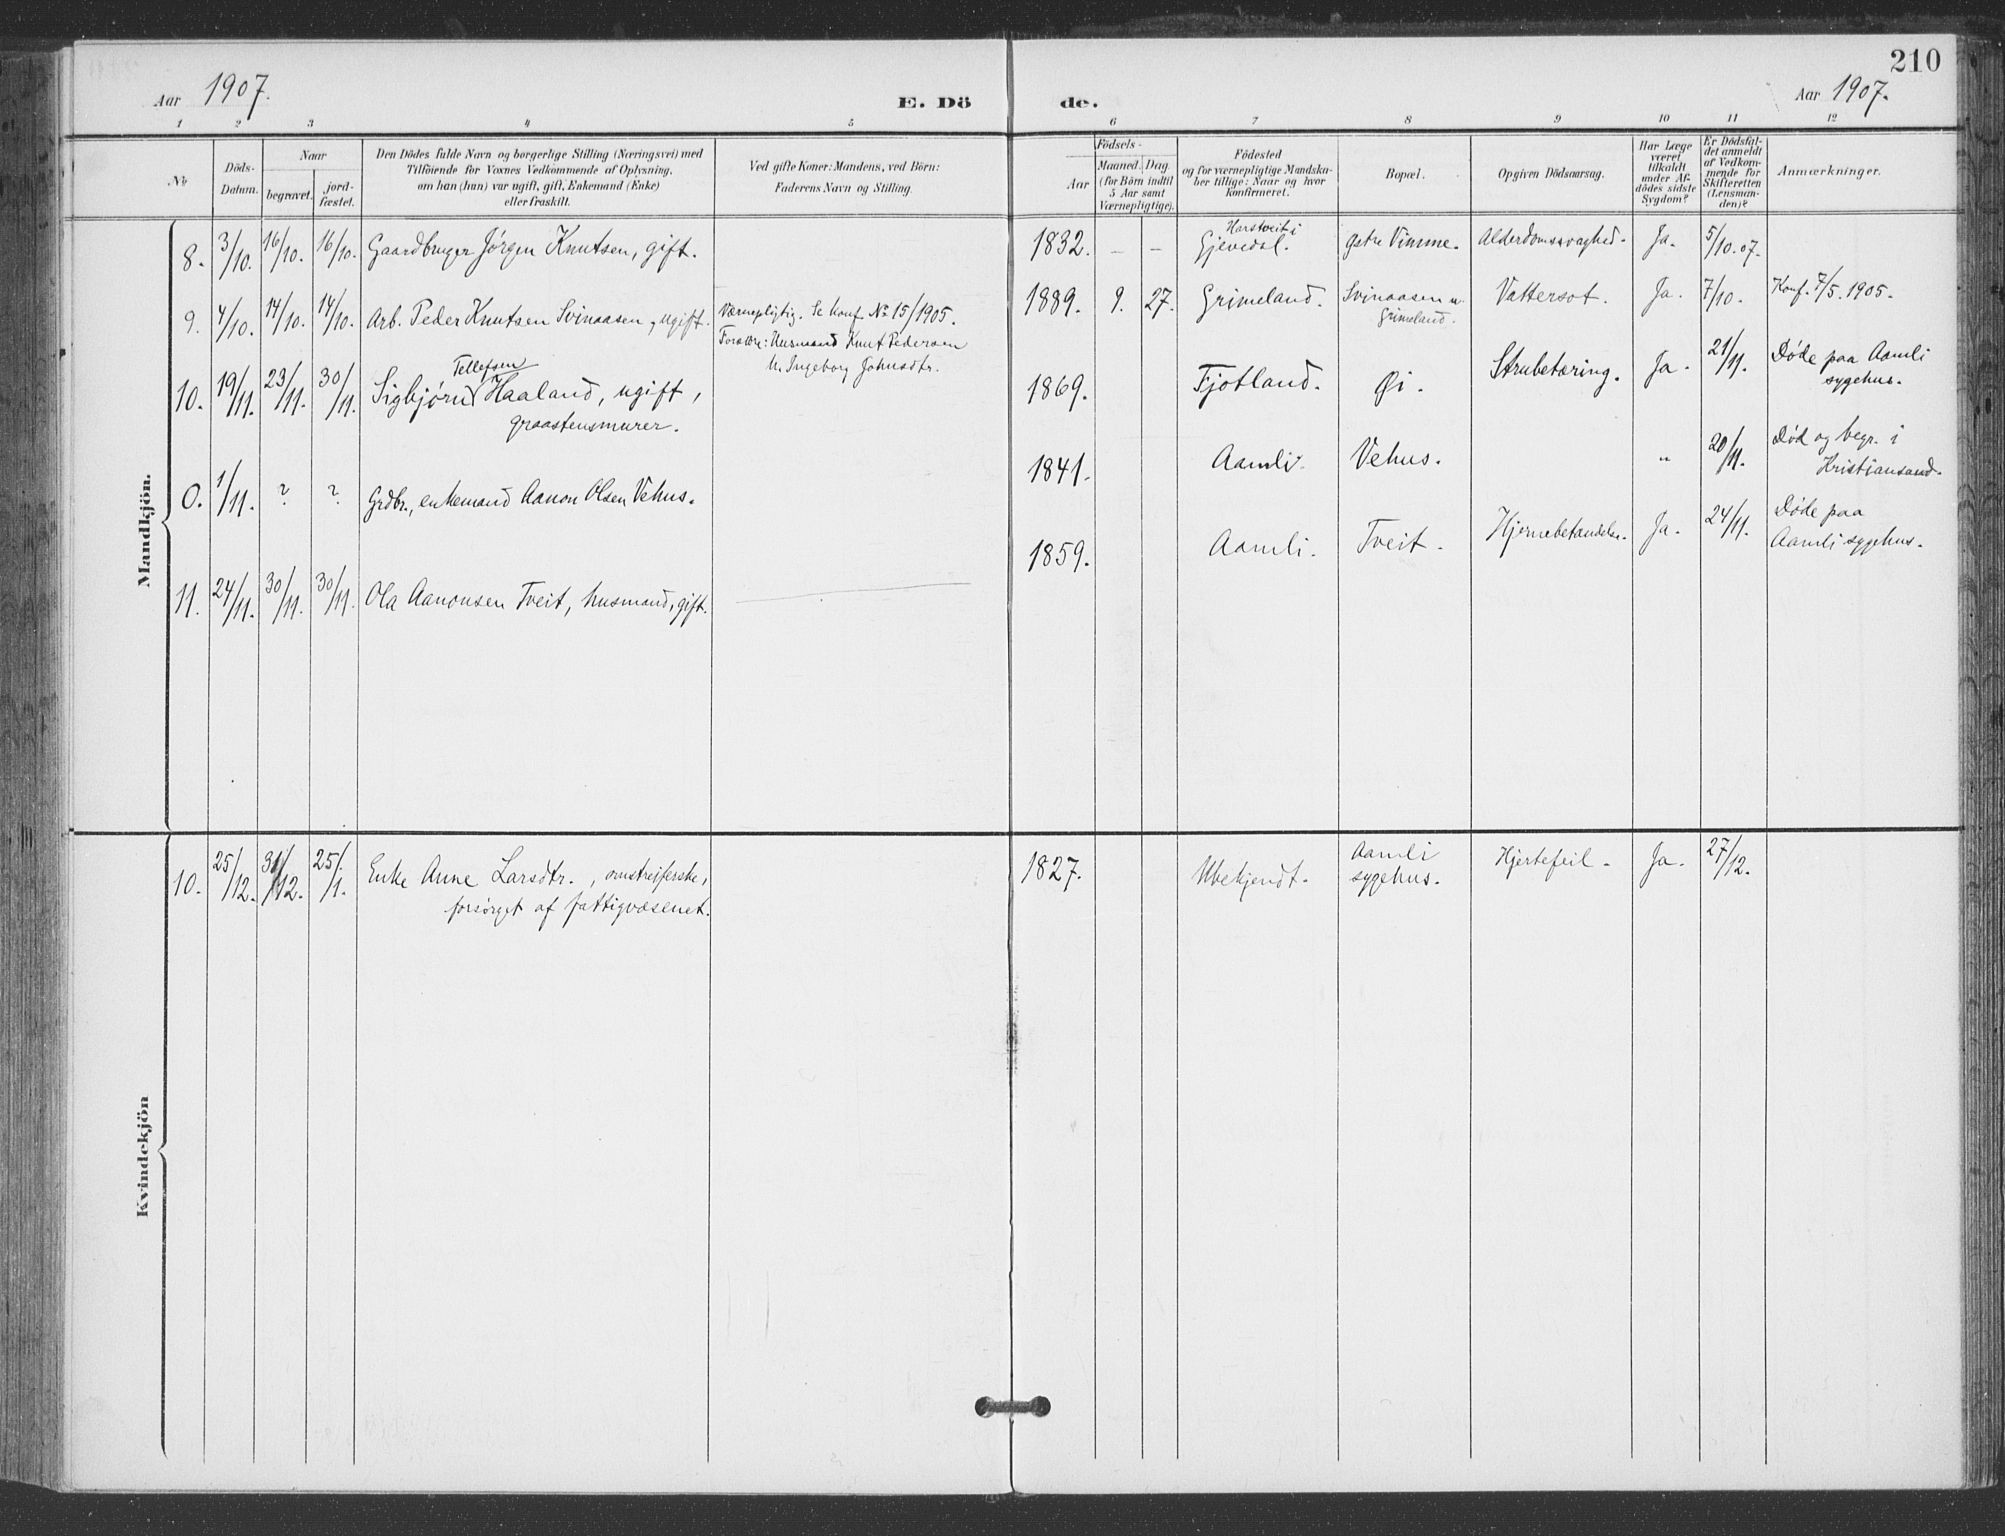 210
Aar 1907.
E. Dö de.
Aar 1907.
1 2 3 4 5 6 7 8 9 10 11 12
No
Döds-Datum.
Naar
begravet.
jord-fæstet.
Den Dödes fulde Navn og borgerlige Stilling (Næringsvei) med
Tilföiende for Voxnes Vedkommende af Oplysning,
om han (hun) var ugift, gift, Enkemand (Enke)
eller fraskilt.
Ved gifte Koner: Mandens, ved Börn:
Faderens Navn og Stilling.
Födsels-
Aar
Maaned. Dag.
(for Börn indtil
5 Aar samt
Værnepligtige).
Födested
og for værnepligtige Mandska-
ber tillige: Naar og hvor
konfirmeret.
Bopæl.
Opgiven Dödsaarsag.
Har Læge
været
tilkaldt
under Af-
dödes sidste
Sygdom?
Er Dödsfal-
det anmeldt
af Vedkom-
mende for
Skifteretten
(Lensman-
den)?
Anmærkninger.
Mandkjön.
8. 3/10. 16/10. 16/10. Gaardbruger Jørgen Knutsen, gift. 1832. – – Harstveit i Gjevedal. østre Vimme. Alderdomssvaghed. Ja. 5/10. 07.
9. 4/10. 14/10. 14/10. Arb. Peder Knutsen Svinaasen, ugift. Værnepligtig. Se Konf. No 15/1905. 1889. 9. 27. Grimeland. Svinaasen u. Grimeland. Vattersot. Ja. 7/10. Konf. 7/5. 1905.
Forældre: Husmand Knut Pedersen
u. Ingeborg Johnsdtr.
10. 19/11. 23/11. 30/11. Sigbjørn Tellefsen Haaland, ugift, 1869. Fjotland. Øi. Strubetæring. Ja. 21/11. Døde paa Aamli
graastensmurer. sygehus.
0. 1/11. ? ? Grdbr., enkemand Aanon Olsen Vehus. 1841. Aamli. Vehus. „ 20/11. Død og begr. i
Kristiansand.
11. 24/11. 30/11. 30/11. Ola Aanonsen Tveit, husmand, gift. 1859. Aamli. Tveit. Hjernebetændelse. Ja. 24/11. Døde paa
Aamli sygehus.
Kvindekjön
10. 25/12. 31/12. 25/1. Enke Anne Larsdtr., omstreiferske, 1827. Ubekjendt. Aamli sygehus. Hjertefeil. Ja. 27/12.
forsørget af fattigvæsenet.